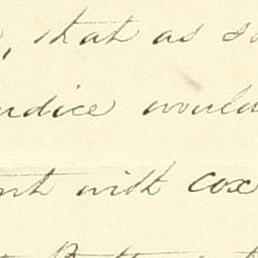 , that as
udice would
nt with cox